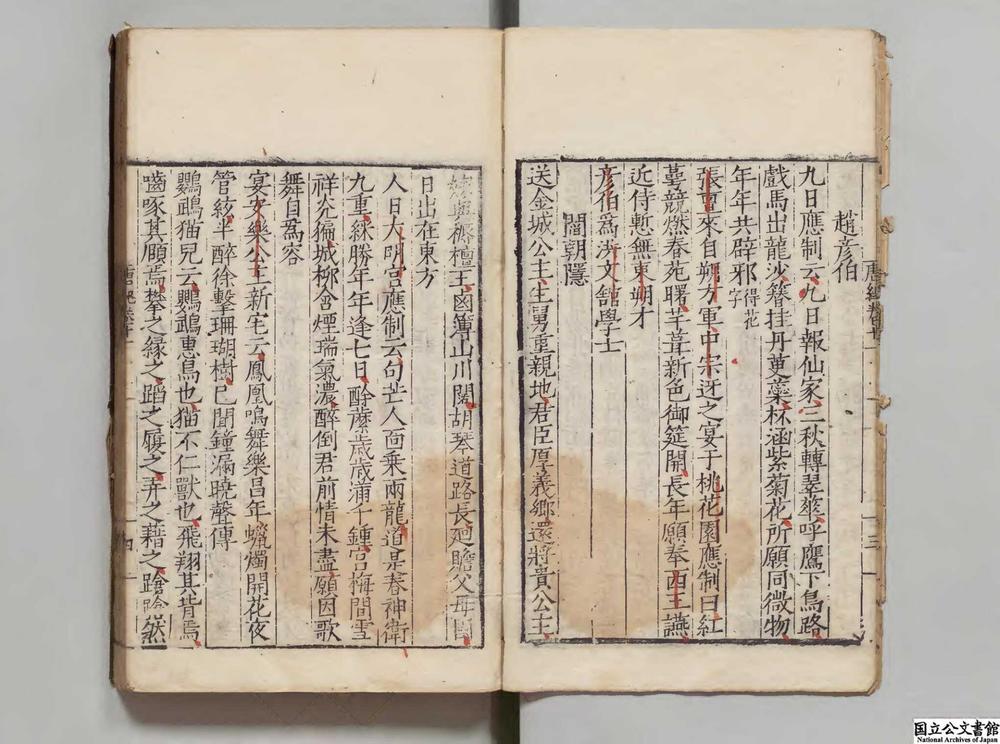 趙彥伯
九日應制云九日報仙家三秋轉翠華呼鷹下鳥路
戲馬出龍沙簪挂丹萸蘂杯涵紫菊花所願同微物
年年共辟邪得花字
張重來自朔方軍中宗迓之宴于桃花園應制曰紅
萼競燃春苑曙芊茸新色御筵開長年願奉西王讌
近侍慙無東朔才
彥伯爲脩文館學士
閻朝隱
送金城公主云甥舅重親地君臣厚義鄉還將貴公主
嫁與耨檀王鹵簿山川闊胡琴道路長廻瞻父母國
日出在東方
人日大明宮應制云句芒人面乗兩龍道是春神衛
九重綵勝年年逢七日酴醾歳歳滿千鍾宮梅間雪
祥光徧城柳含煙瑞氣濃醉倒君前情未盡願因歌
舞自爲容
宴安樂公主新宅云鳳凰鳴舞樂昌年蠟燭開花夜
管絃半醉徐擊珊瑚樹已聞鐘漏曉聲傳
鸚鵡猫兒云鸚鵡惠鳥也猫不仁獸也飛翔其背焉
齧啄其頤焉攀之縁之蹈之履之弄之藉之蹌蹌然
三
四
国立公文書館
National Archives of Japan